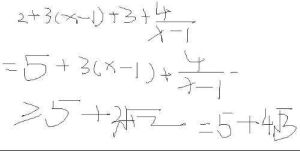 2+3(x-1)+3+\frac{4}{x-1}
=5+3(x-1)+\frac{4}{x-1}
≥5+2\sqrt{12}=5+4\sqrt{3}